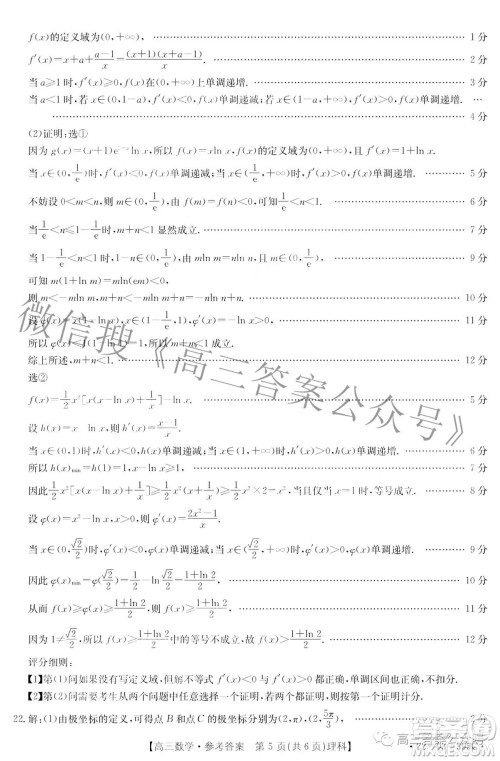 f(x)的定义域为(0,+∞)， 1分
f′(x)=x+a+\frac{a-1}{x}=\frac{(x+1)(x+a-1)}{x}. 2分
当a≥1时,f′(x)≥0,f(x)在(0,+∞)上单调递增. 3分
当a<1时,若x∈(0,1-a),f′(x)<0,f(x)单调递减;若x∈(1-a,+∞),f′(x)>0,f(x)单调递增. …
4分
(2)证明:选①
因为g(x)=(x+1)e ln x,所以f(x)=xln x,f(x)的定义域为(0,+∞),且f′(x)=1+ln x.
当x∈(0,\frac{1}{e})时,f′(x)<0,f(x)单调递减;当x∈(\frac{1}{e},+∞)时,f′(x)>0,f(x)单调递增. 5分
不妨设0<m<n,则m∈(0,\frac{1}{e}),由f(m)=f(n)<0,可知n<1. 6分
当\frac{1}{e}<n≤1-\frac{1}{e}时,m+n<1显然成立. 7分
当1-\frac{1}{e}<n<1时,1-n∈(0,\frac{1}{e}),由m∈(0,\frac{1}{e}), 9分
可知m(1+ln m)=mln(em)<0,
则m<-mln m,m+n<-mln m+n=n-nln n. 10分
设φ(x)=x-xln x,x∈(1-\frac{1}{e},1),φ′(x)=-ln x>0, 11分
所以φ(x)<φ(1)=1,所以m+n<1成立.
综上所述,m+n<1. 12分
选②
f(x)=\frac{1}{2}x²[x-ln(x)+\frac{1}{x}]-ln x.
设h(x)=x-ln x,h′(x)=\frac{x-1}{x}.
当x∈(0,1)时,h′(x)<0,h(x)单调递减;当x∈(1,+∞)时,h′(x)>0,h(x)单调递增. 6分
所以h(x)min=h(1)=1,x-ln x≥1, 7分
因此\frac{1}{2}x²[x-ln(x)+\frac{1}{x}]≥\frac{1}{2}x²(x+\frac{1}{x})≥\frac{1}{2}x²×2=x²,当且仅当x=1时,等号成立. 8分
设φ(x)=x²-ln x,φ′(x)=\frac{2x²-1}{x}.
当x∈(0,\frac{√2}{2})时,φ′(x)<0,φ(x)单调递减;当x∈(\frac{√2}{2},+∞)时,φ′(x)>0,φ(x)单调递增. 9分
因此φ(x)min=φ(\frac{√2}{2})=\frac{1}{2}-ln\frac{√2}{2}=\frac{1+ln 2}{2}. 10分
从而f(x)≥φ(x)≥\frac{1+ln 2}{2},则f(x)≥\frac{1+ln 2}{2}. 11分
因为1≠\frac{√2}{2},所以f(x)≥\frac{1+ln 2}{2}中的等号不成立,故f(x)>\frac{1+ln 2}{2}. 12分
评分细则:
【1】第(1)问如果没有写定义域,但解不等式f′(x)<0与f′(x)>0都正确,单调区间正确,不扣分.
【2】第(2)问需要考生从两个问题中任意选择一个作答,若两个问题都作答,则按第一个计分.
22.解:(1)由极坐标的定义,可得点B和点C的极坐标分别为(2,π),(2,\frac{5π}{3}), 2分
【高三数学·参考答案 第5页(共6页)理科】
微信搜《高三答案公众号》